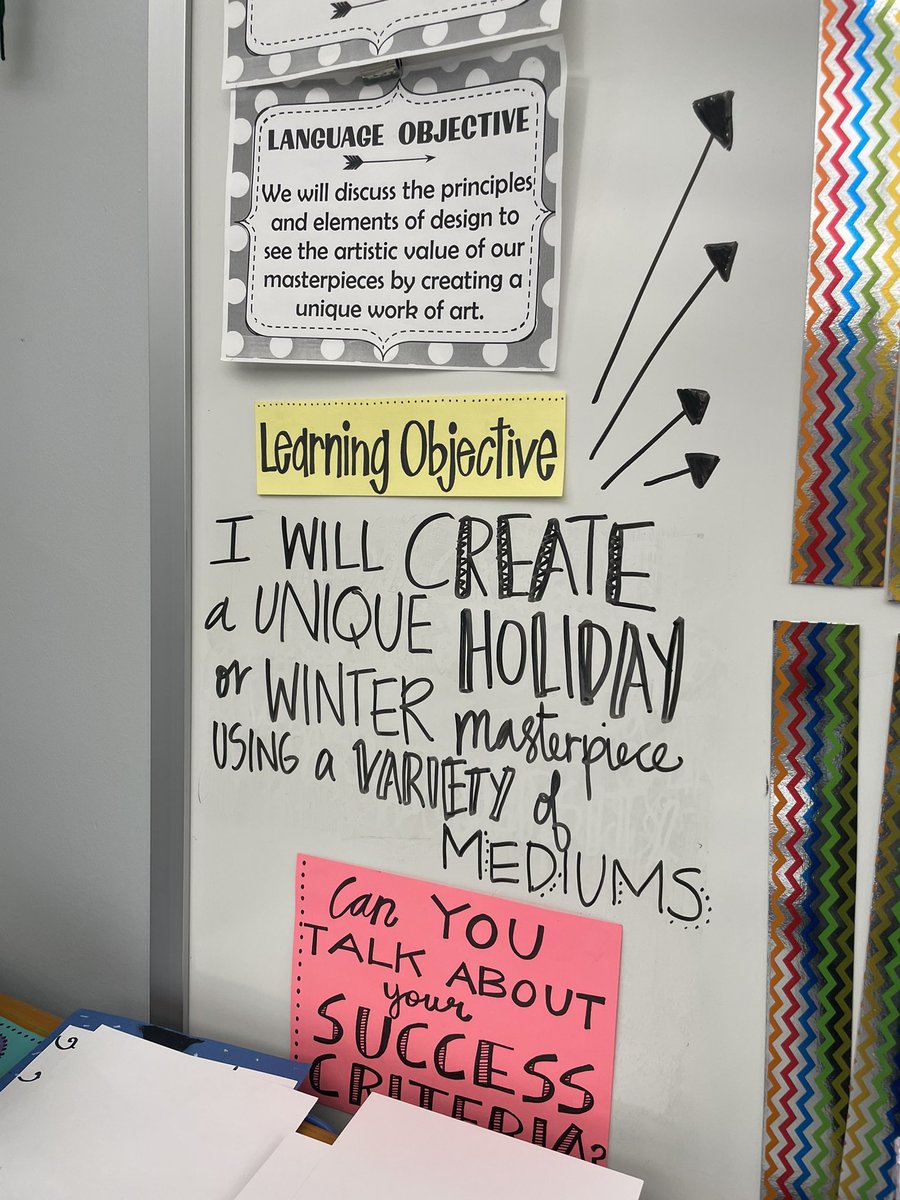 LANGUAGE OBJECTIVE
We will discuss the principles
and elements of design to
see the artistic value of our
masterpieces by creating a
unique work of art.
Learning Objective
I WILL CREATE
a UNIQUE HOLIDAY
or WINTER masterpiece
USING a VARIETY of
MEDIUMS
Can YOU
TALK ABOUT
your
SUCCESS
CRITERIA?